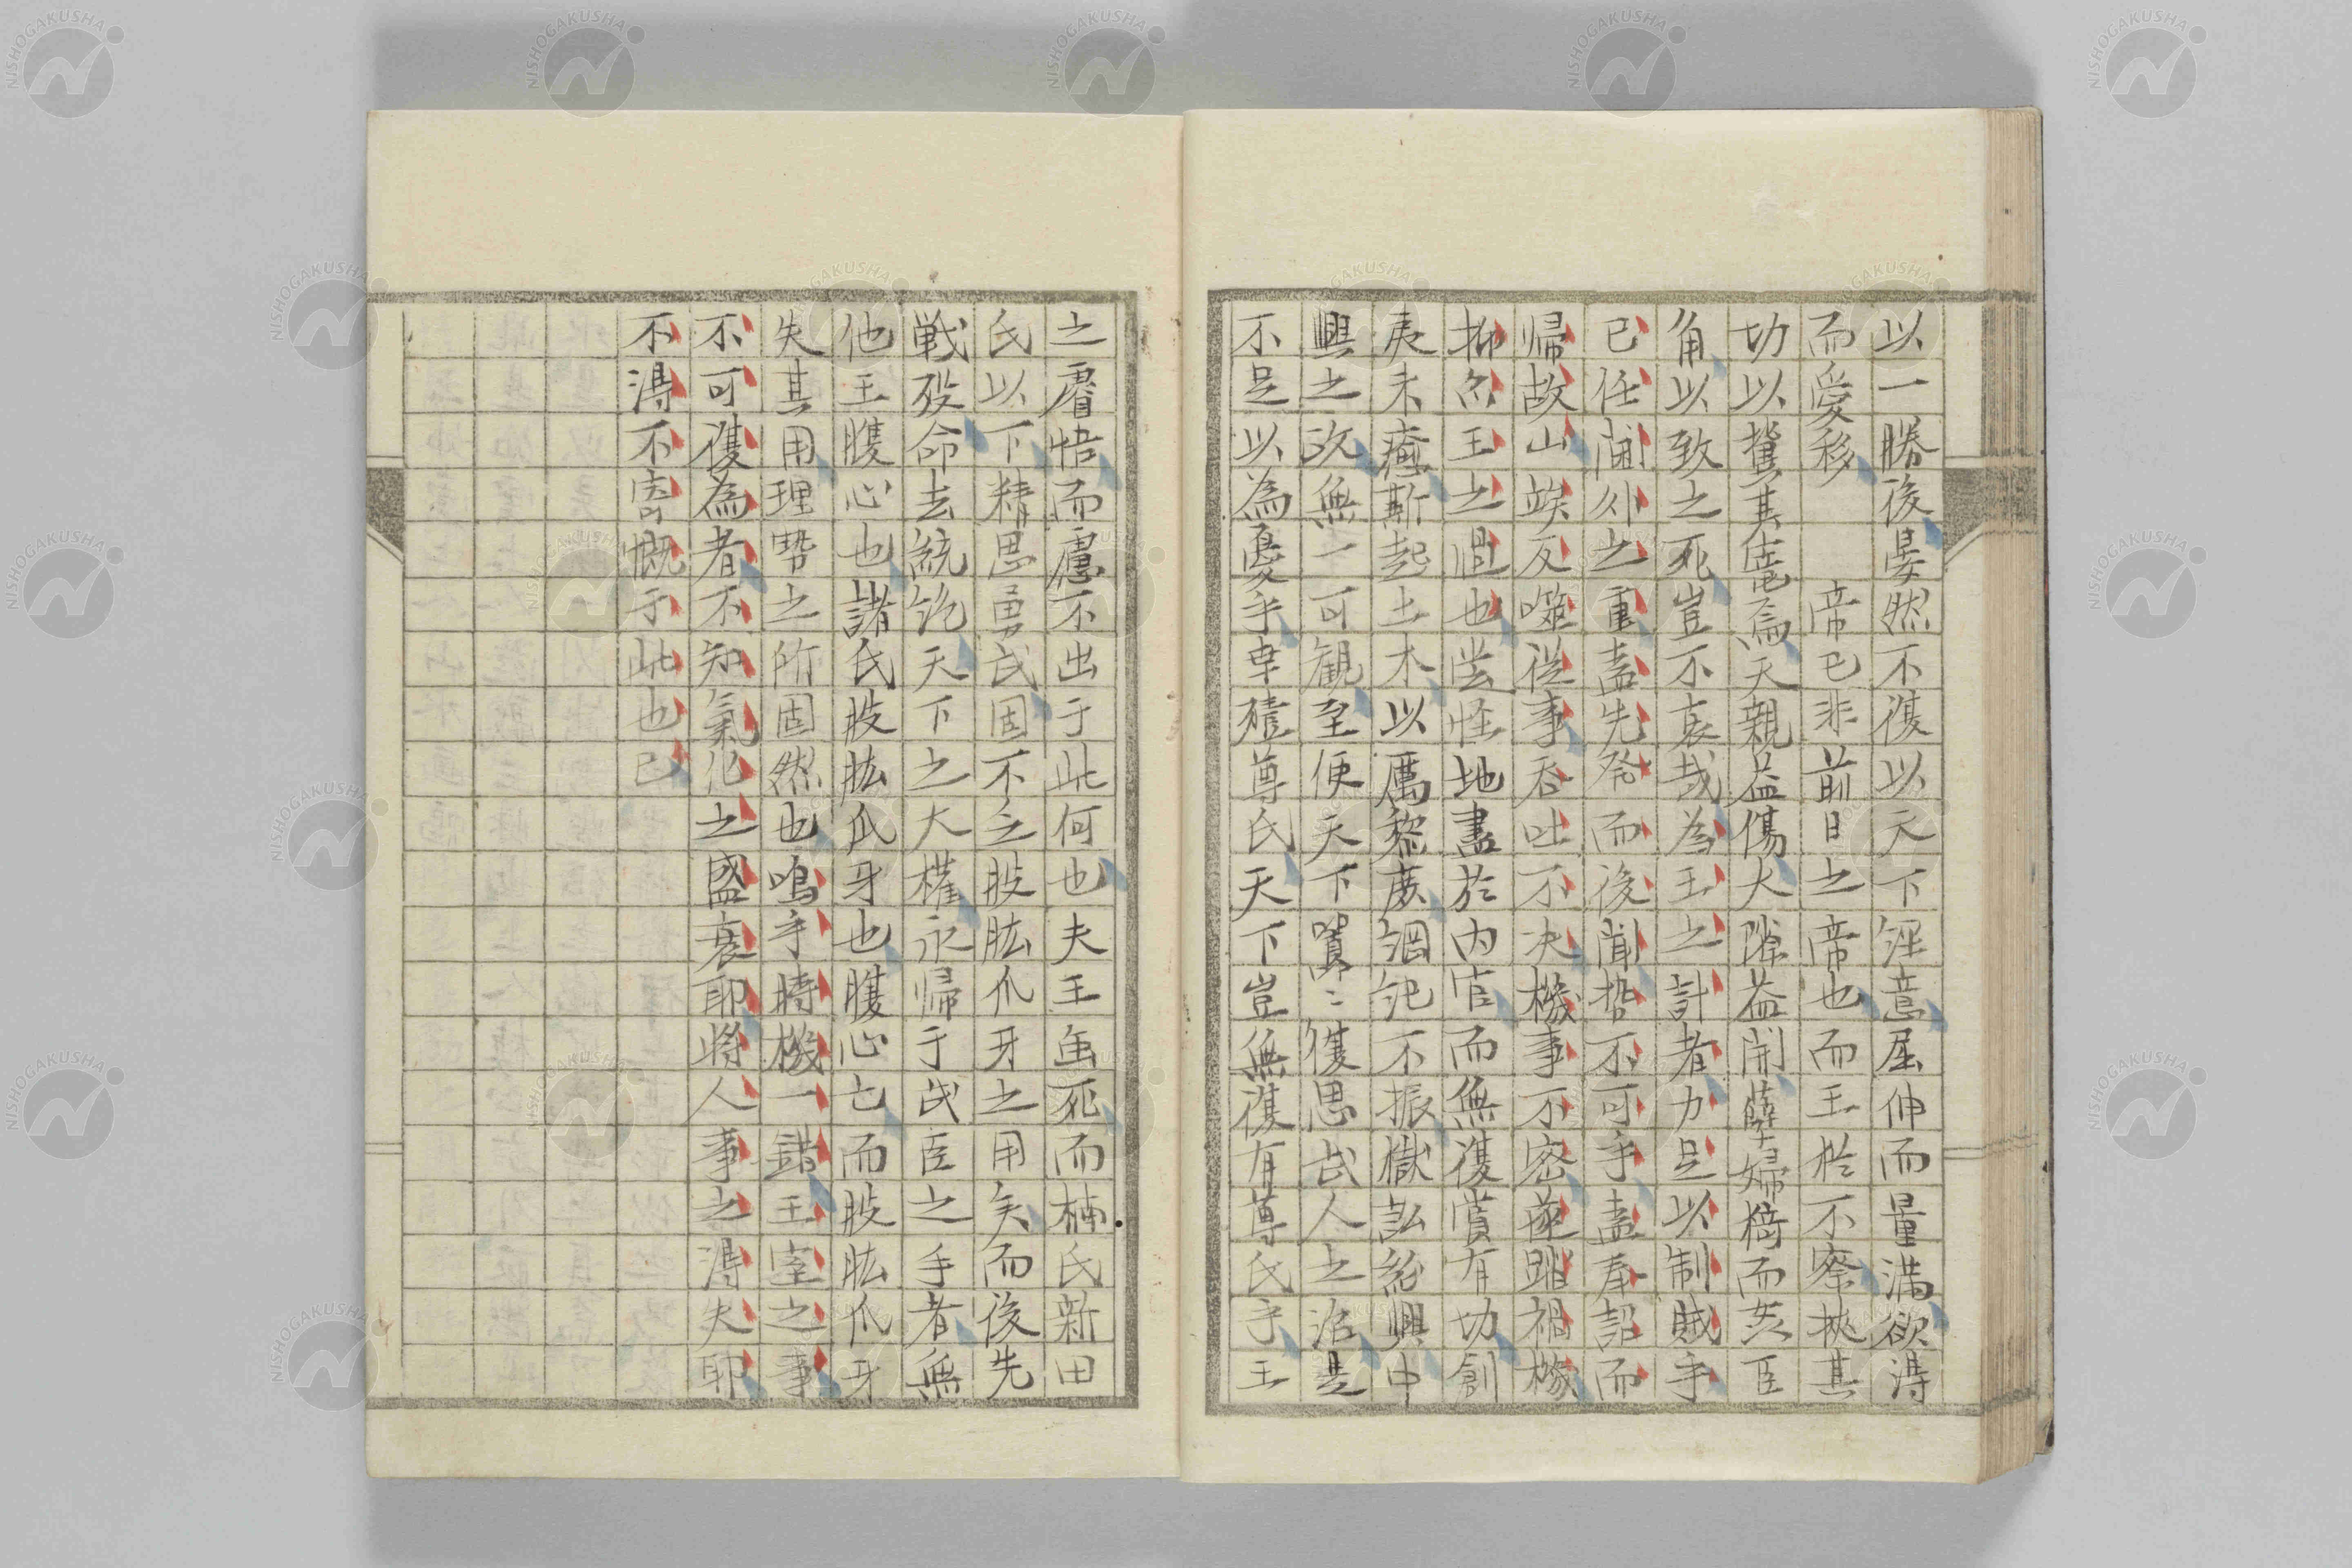 以一勝後晏然不復以天下經意屈伸而量満欲淂
而愛移帝已非前日之帝也而王於不察挾其
功以冀其庇焉天親益傷大隙益開孽婦掎而共臣
角以致之死豈不哀哉為王之計者力足以制賊乎
已任閫外之重盍先発而後聞哲不可乎盍奉詔而
帰故山竢反噬従事呑吐不决機事不密遂蹈禍機
抑尓王之愠也甞怪地盡於内官而無復賞有功創
庱未癒斯起土木以厲黎庻綱紀不振獄訟紛興中
興之政無一可観至便天下嚣〻復思武人之治是
不足以為憂乎幸殪尊氏天下豈無復有尊氏乎王
之睿悟而慮不出于此何也夫王虽死而楠氏新田
氏以下精思勇武固不乏股肱爪牙之用矣而後先
戦歿命去統訖天下之大權永帰于武臣之手者無
他王腹心也諸氏股肱爪牙也腹心亡而股肱爪牙
失其用理勢之所固然也嗚乎時機一錯王室之事
不可復為者不知氣化之盛衰耶将人事之淂失耶
不淂不寄慨于此也已
NISHOGAKUSHA